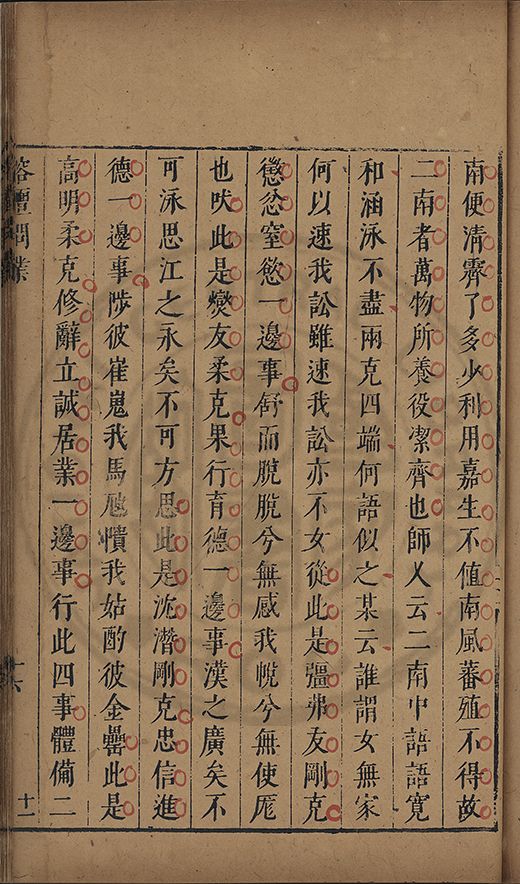 南便清霽了多少利用嘉生不值南風蕃殖不得故
二南者萬物所養役潔齊也師乂云二南中語語寬
和涵泳不盡兩克四端何語似之某云誰謂女無家
何以速我訟雖速我訟亦不女從此是彊弗友剛克
懲忿窒慾一邊事舒而脫脫兮無感我帨兮無使厖
也吠此是燮友柔克果行育德一邊事漢之廣矣不
可泳思江之永矣不可方思此是沈潛剛克忠信進
德一邊事陟彼崔嵬我馬虺隤我姑酌彼金罍此是
高明柔克修辭立誠居業一邊事行此四事體備二
榕壇問業
十一